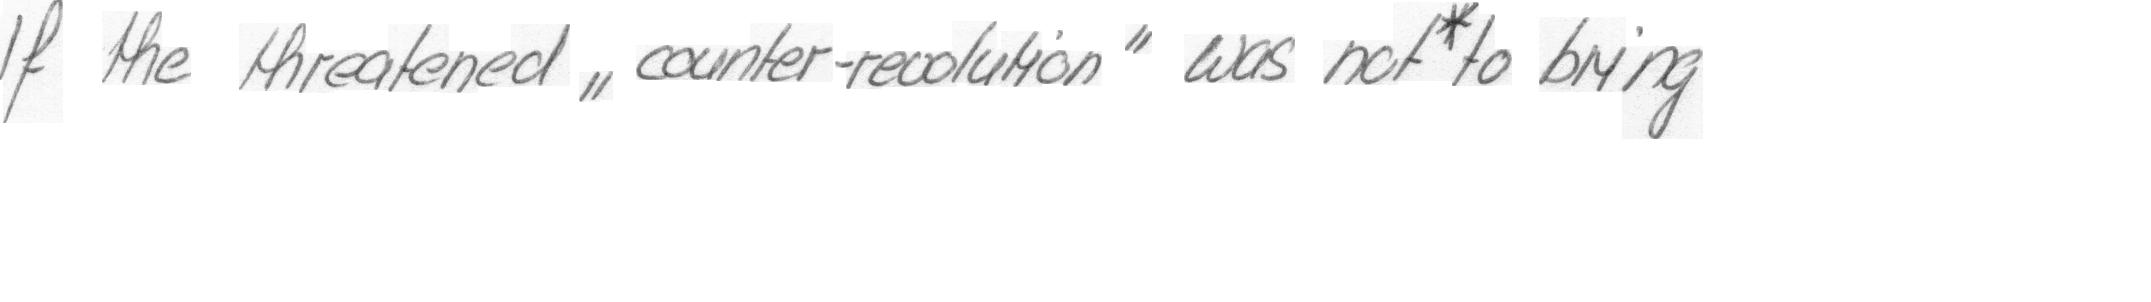 If the threatened „counter-revolution" was not*to bring